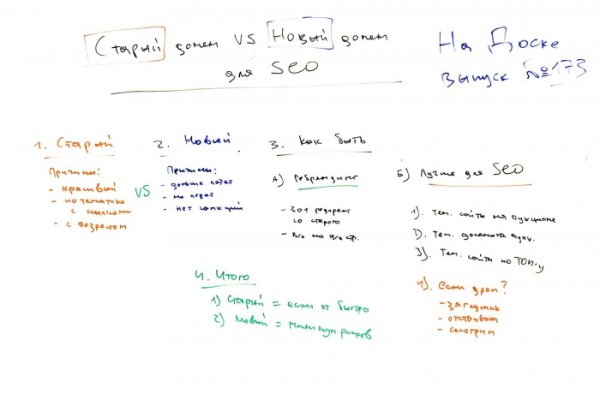 Старый домен VS Новый домен
для SEO
На Доске
выпуск №173
1. Старый
Причины:
- красивый
- по тематике
с ссылками
- с возрастом
VS
2. Новый
Причины:
- дольше
- не
- нет санкций
3. Как быть
А) Ребрендинг
- 301 редирект
со старого
- Все на все стр.
Б) Лучше для SEO
1). Тем. сайты на аукционе
2). Тем. домены аукц.
3). Тем. сайты по ТОП-у
4). если дроп?
- загрузка
- отстойник
- смотрим
4. Итого
1) Старый = если оч быстро
2) Новый = минимум рисков